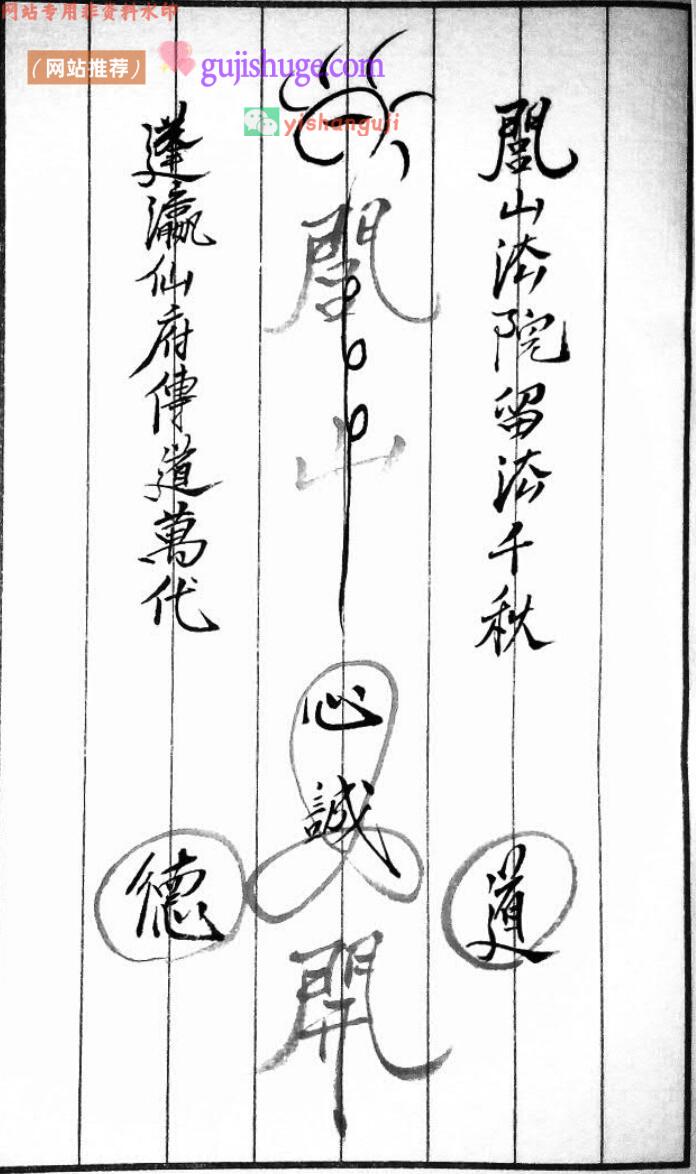 网站专用非资料水印
（网站推荐） gujishuge.com
yishanguji
閭山法院留法千秋
道
閭山
心誠
開
蓬瀛仙府傳道萬代
德